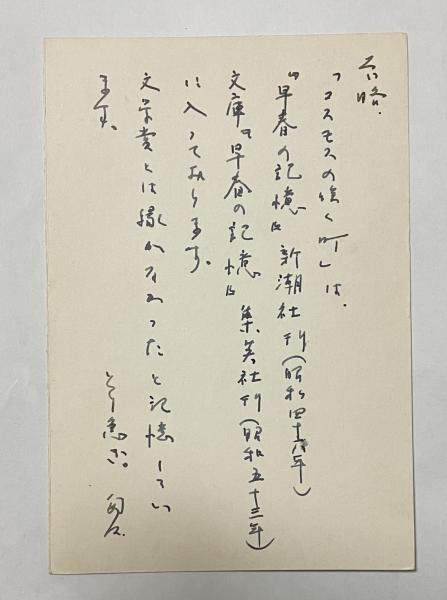 前略.
「コスモスの咲く町」は、
『早春の記憶』新潮社刊(昭和四十六年)
文庫『早春の記憶』集英社刊(昭和五十三年)
に入っております。
文学賞とは縁がなかったと記憶してい
ます。
とり急ぎ。匆々.